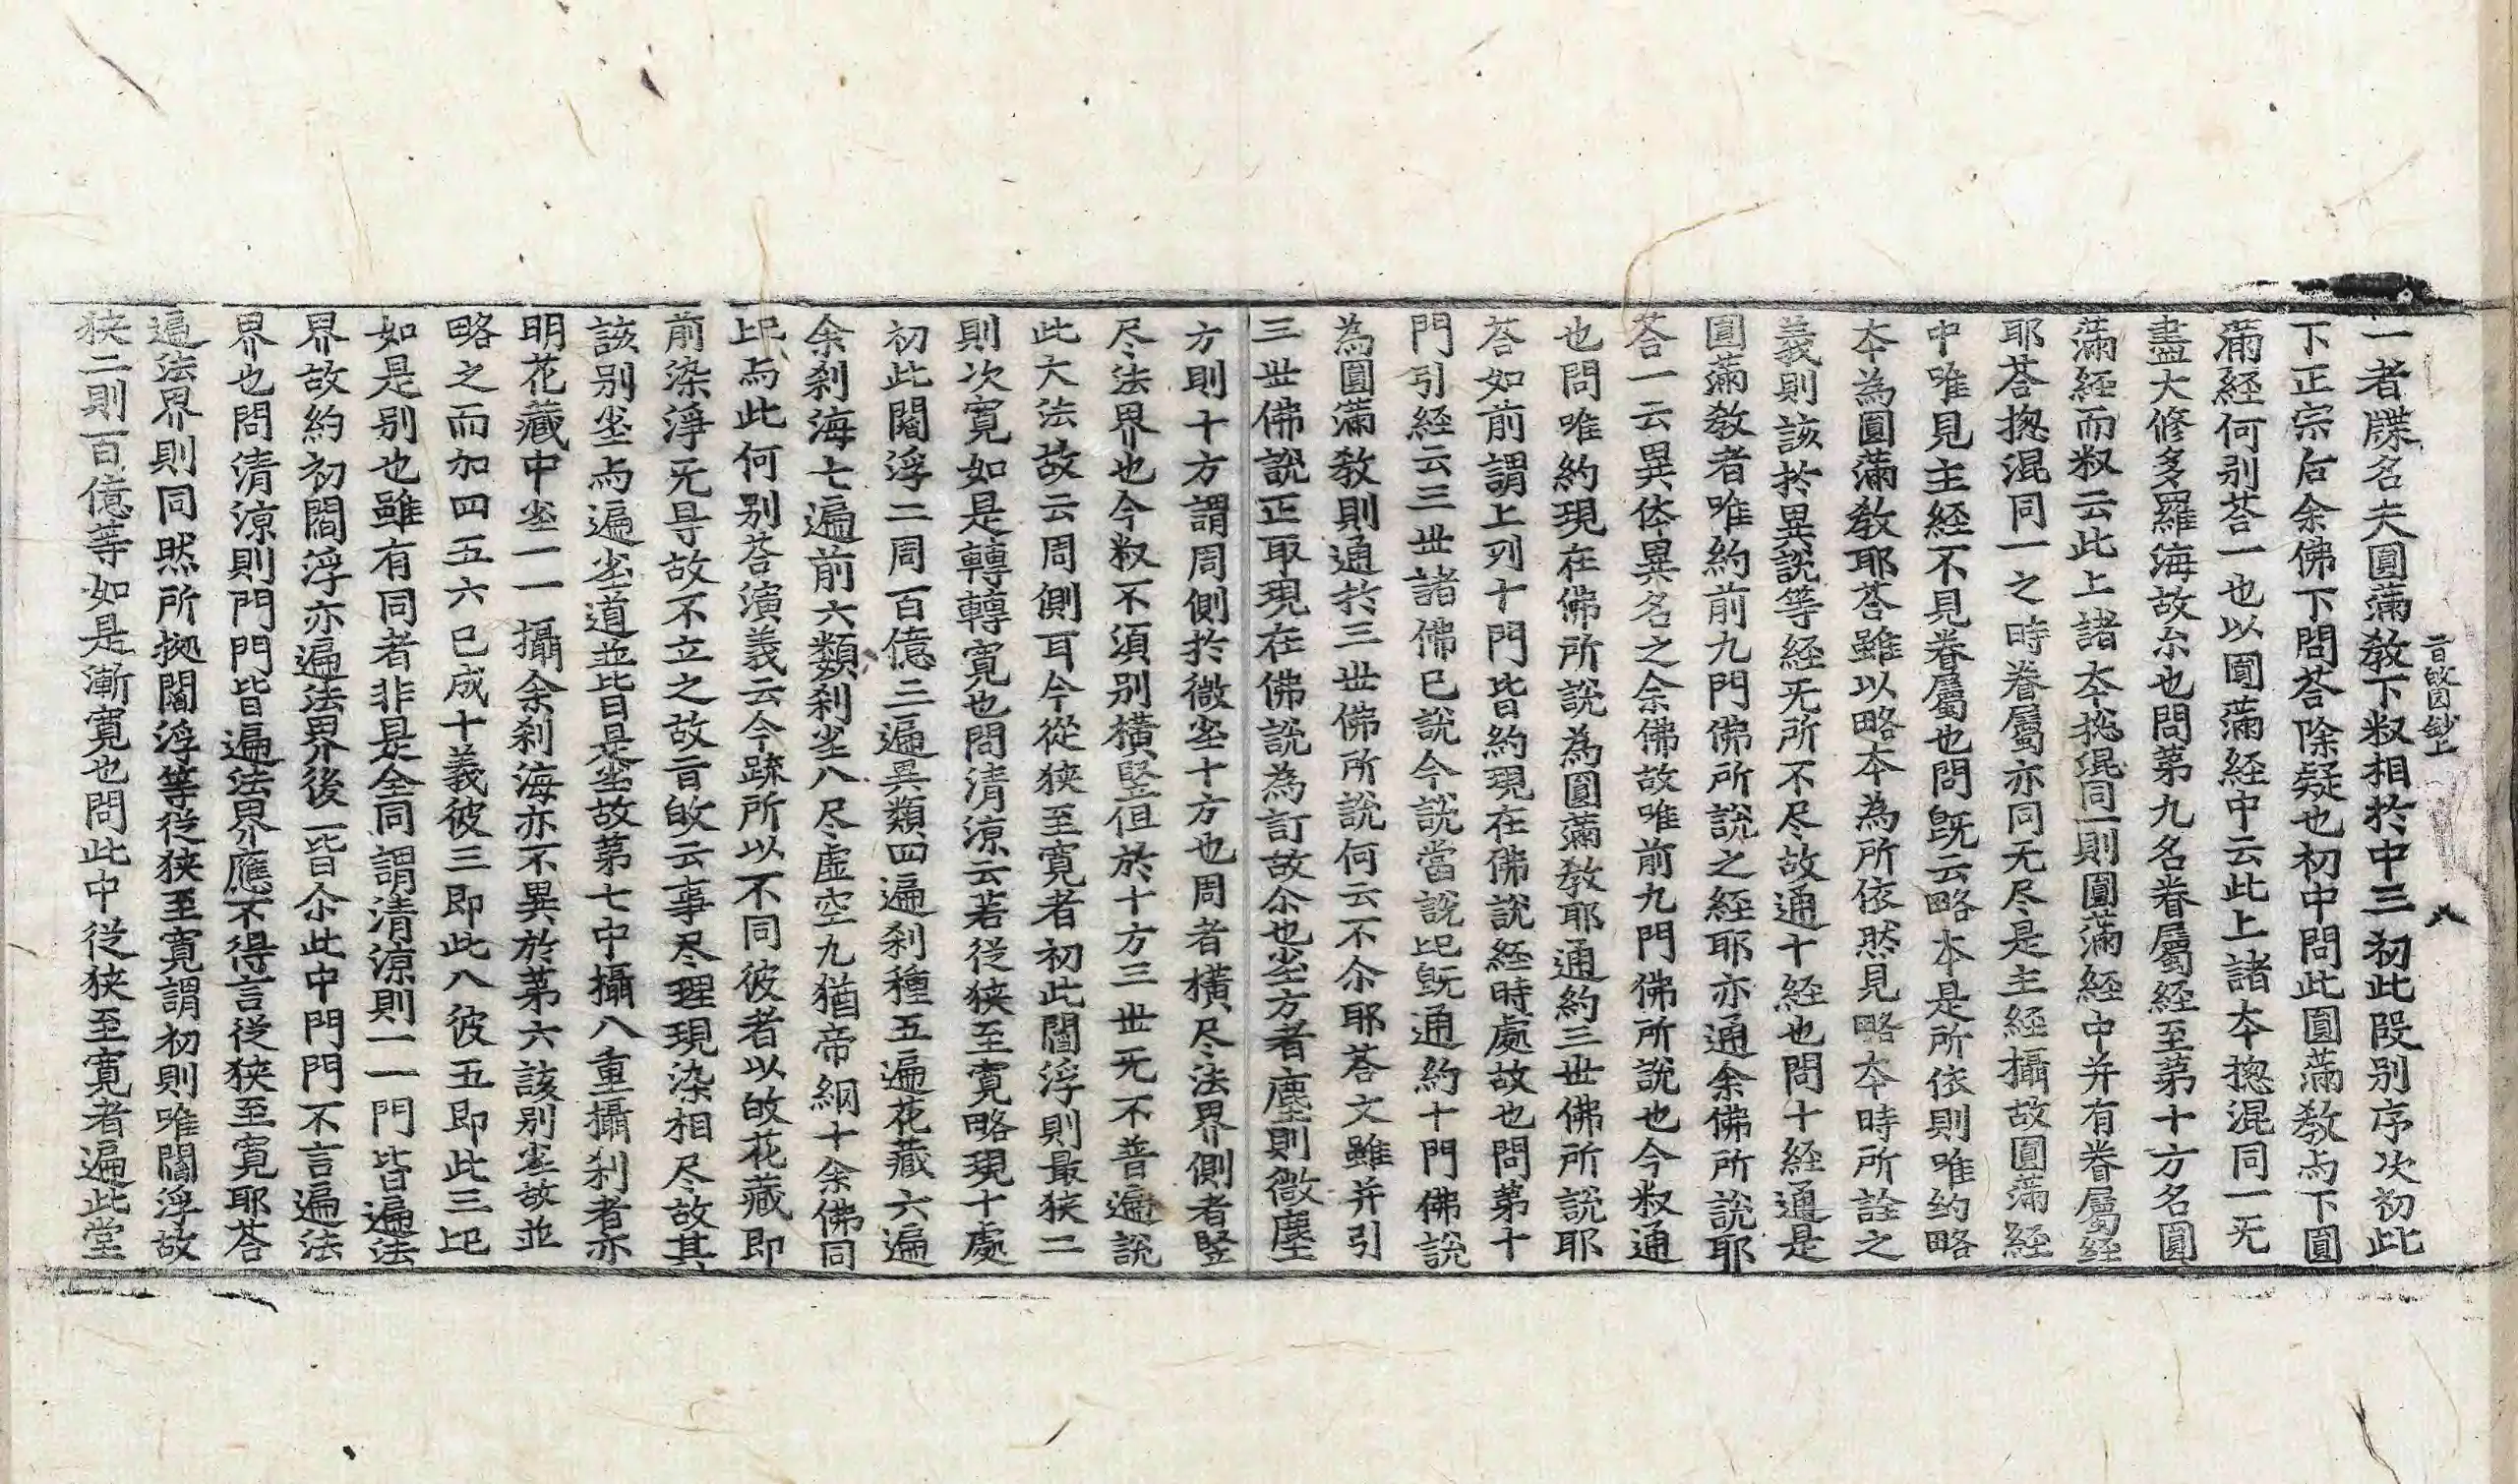 一者牒名夫圓滿敎下㕘相扵中三初此叚别序次初此
下正宗后余佛下問荅除疑也初中問此圓滿敎与下圓
滿經何别荅一也以圓滿經中云此上諸夲揔混同一无
盡大修多羅海故尒也問苐九名眷屬經至苐十方名圓
滿經而㕘云此上諸夲揔混同一則圓滿經中并有眷屬經
耶荅揔混同一之時眷屬亦同无尽是主經攝故圓滿經
中唯見主經不見眷屬也問旣云略本是所依則唯約略
夲為圓滿敎耶荅雖以略夲為所依然見略夲時所詮之
義則該扵異說等經无所不尽故通十經也問十經通是
圓滿敎者唯約前九門佛所說之經耶亦通余佛所說耶
荅一云異体異名之余佛故唯前九門佛所說也今㕘通
也問唯約現在佛所說為圓滿敎耶通約三世佛所說耶
荅如前謂上列十門皆約現在佛說經時處故也問苐十
門引經云三世諸佛已說今說當說記旣通約十門佛說
為圓滿敎則通扵三世佛所說何云不尒耶荅文雖并引
三世佛說正取現在佛說為訂故尒也尘方者塵則微塵
方則十方謂周側扵微尘十方也周者橫尽法界側者竪
尽法界也今㕘不湏别橫竪但於十方三世无不普遍說
此大法故云周側耳今從狹至寛者初此閻浮則最狹二
則次寛如是轉轉寛也問清凉云若從狹至寛略現十處
初此閻浮二周百億三遍異類四遍刹種五遍花藏六遍
余刹海七遍前六類刹尘八尽虛空九猶帝網十余佛同
記与此何别荅演義云今䟽所以不同彼者以故花藏即
前染淨无㝵故不立之故㫖㱾云事尽理現染相尽故其
該别尘与遍尘道並皆是尘故苐七中攝八重攝刹者亦
明花藏中尘一一攝余刹海亦不異於苐六該别尘故並
略之而加四五六已成十義彼三即此八彼五即此三記
如是别也雖有同者非是全同謂清凉則一一門皆遍法
界故約初閻浮亦遍法界後一皆尒此中門門不言遍法
界也問清凉則門門皆遍法界應不得言從狹至寛耶荅
遍法界則同然所拠閻浮等從狹至寛謂初則唯閻浮故
狹二則百億等如是漸寛也問此中從狹至寛者遍此堂